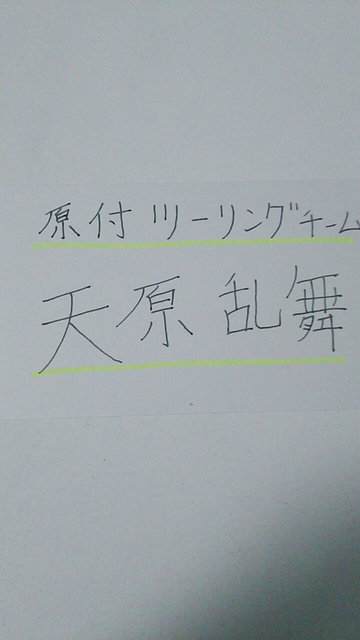 原付ツーリングチーム
天原乱舞